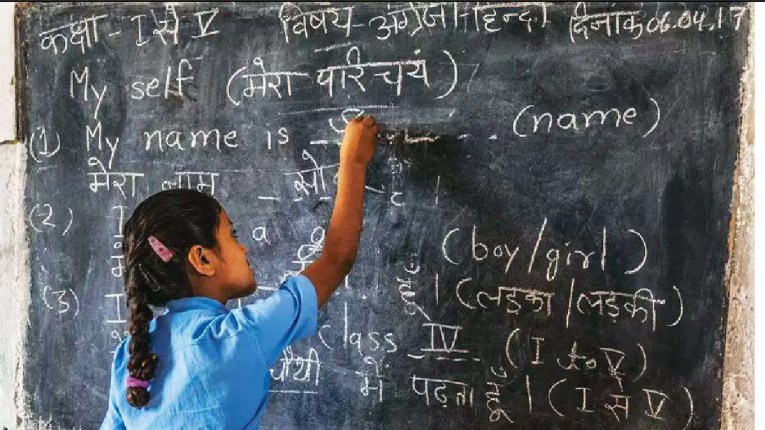 कक्षा - I से V विषय - अंग्रेजी हिन्दी दिनांक 06.04.17
My self (मेरा परिचय)
(1) My name is (name)
मेरा नाम
(2) I a (boy/girl)
हूँ। (लड़का/लड़की)
(3) I class IV (I to V)
चौथी में पढ़ता हूँ। (I से V)